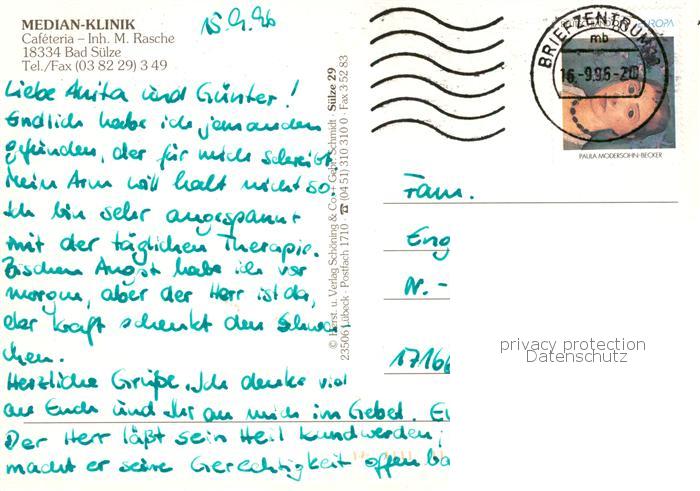 MEDIAN-KLINIK
Caféteria – Inh. M. Rasche
18334 Bad Sülze
Tel./Fax (03 82 29) 3 49
15.9.96
Liebe Anita und Günter!
Endlich habe ich jemanden
gefunden, der für mich schreibt.
Mein Arm will halt nicht so.
Ich bin sehr angespannt
mit der täglichen Therapie.
Bischen Angst habe ich vor
morgen, aber der Herr ist da,
der Kraft schenkt den Schwa
chen.
Herzliche Grüße. Ich denke viel
an Euch und Ihr an mich im Gebet.
Der Herr läßt sein Heil kundwerden,
macht er seine Gerechtigkeit offenba
© Herst. u. Verlag Schöning & Co + Schmidt · Sülze 29
23506 Lübeck · Postfach 1710 · ☎ (04 51) 310 310 0 · Fax 3 52 83
BRIEFZENTRUM
mb
EUROPA
PAULA MODERSOHN-BECKER
Fam.
Eng
Nr. -
17166
privacy protection
Datenschutz